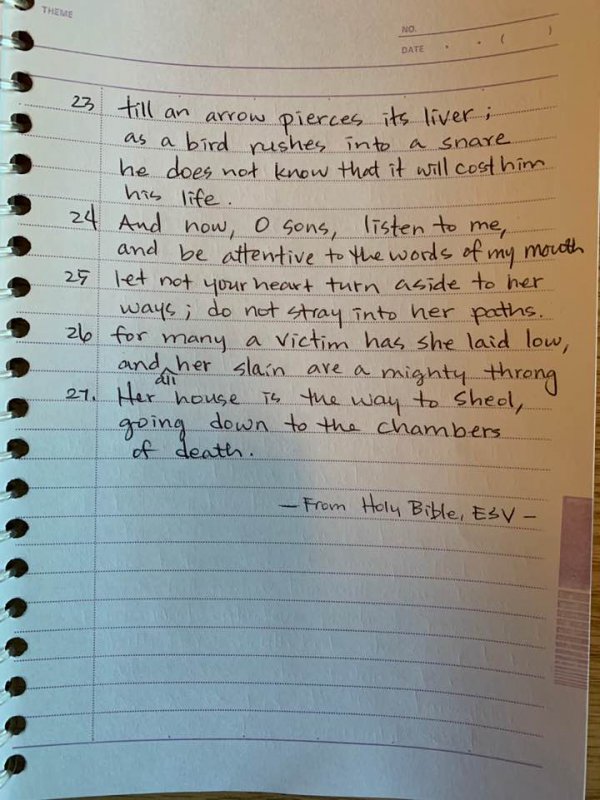 THEME
NO.
DATE . . ( )
23 till an arrow pierces its liver;
as a bird rushes into a snare
he does not know that it will cost him
his life.
24 And now, O sons, listen to me,
and be attentive to the words of my mouth
25 let not your heart turn aside to her
ways; do not stray into her paths.
26 for many a victim has she laid low,
and all her slain are a mighty throng
27. Her house is the way to Sheol,
going down to the chambers
of death.
— From Holy Bible, ESV —